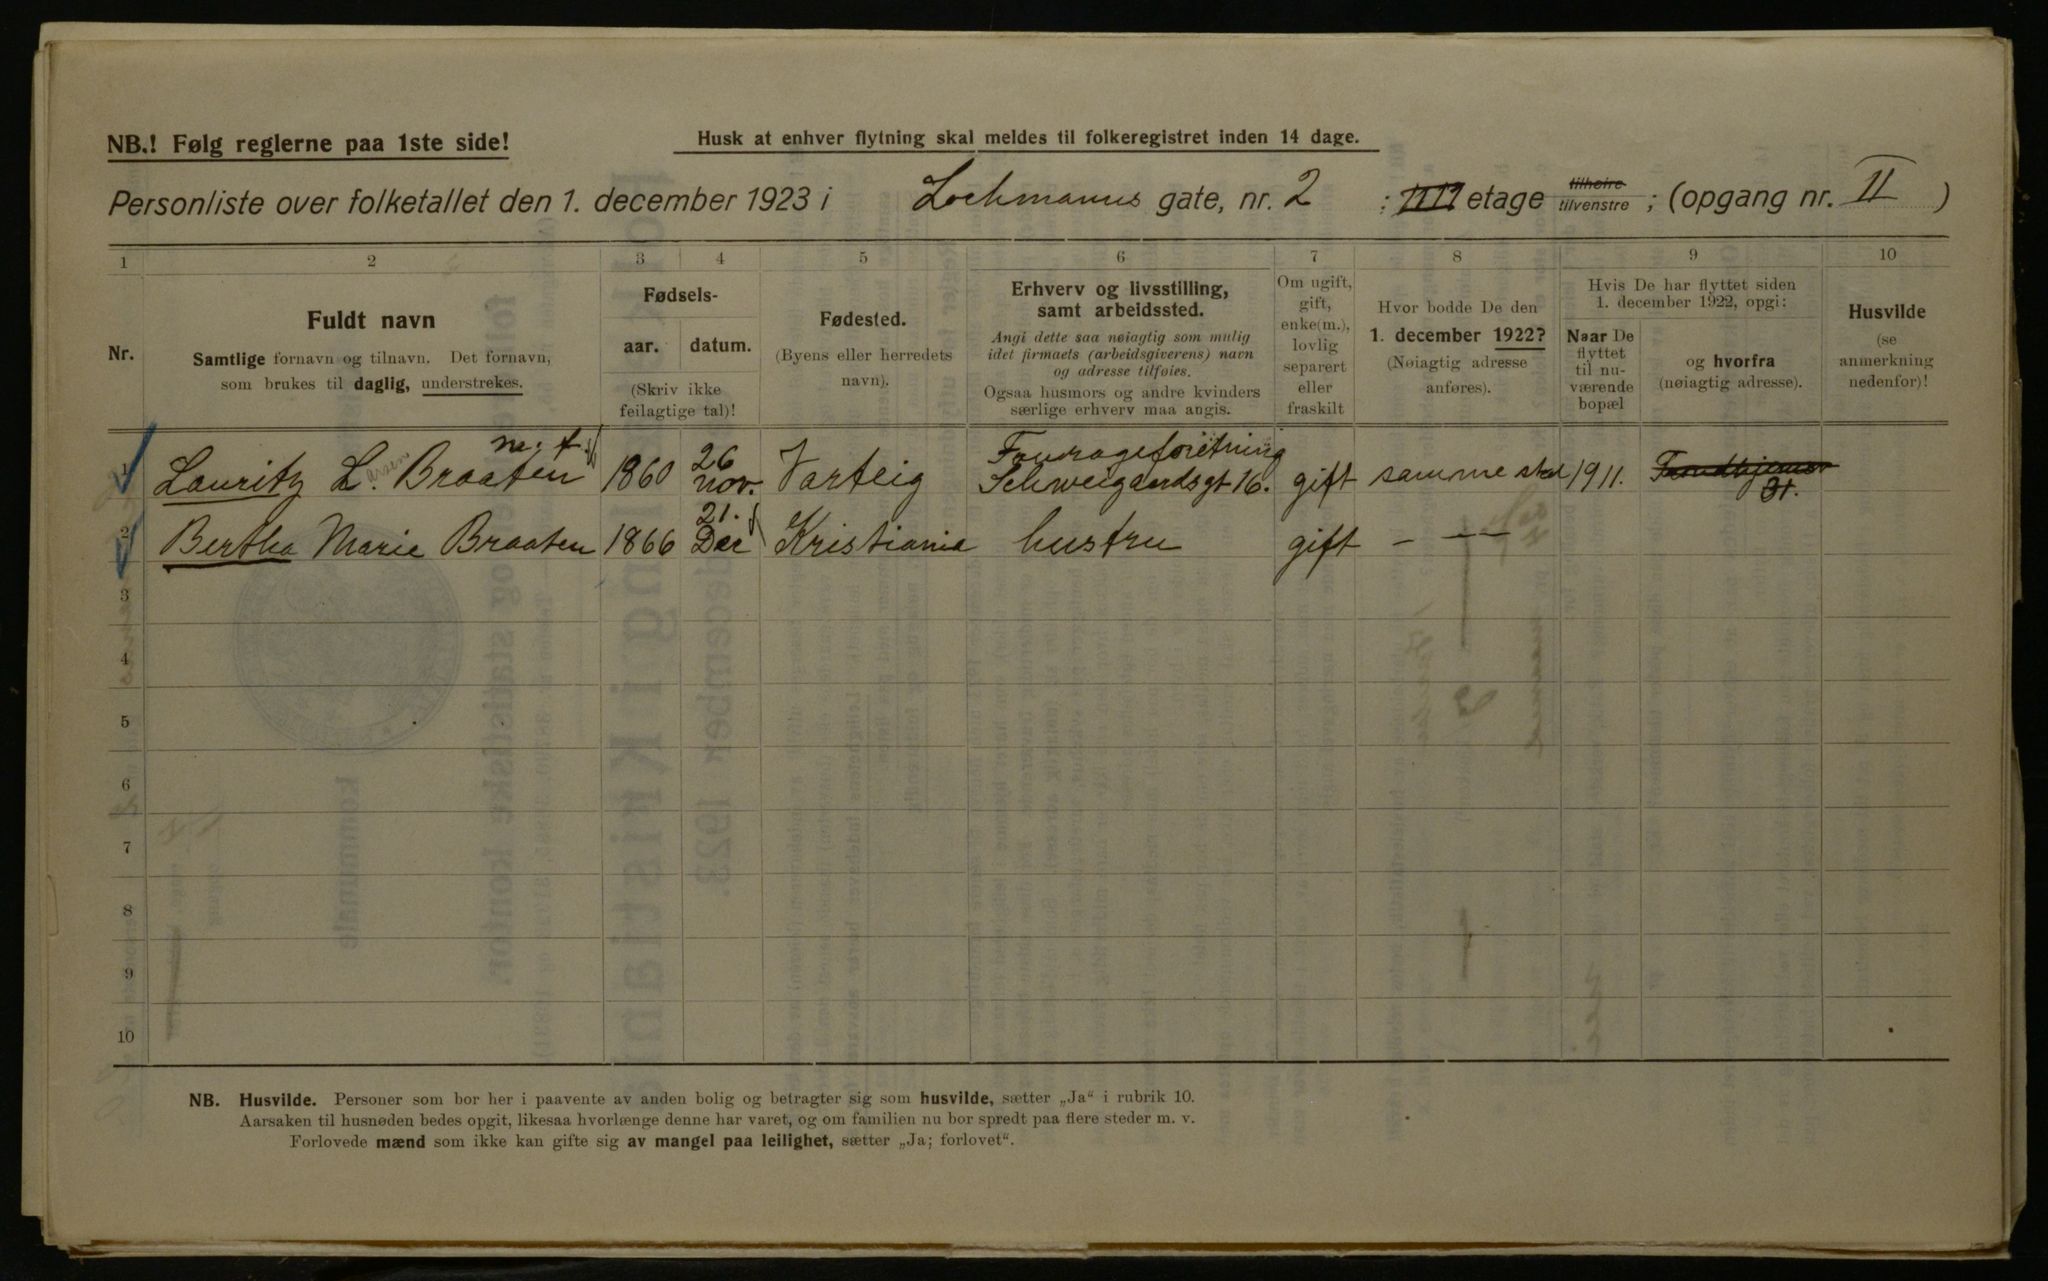 NB.! Følg reglerne paa 1ste side!
Husk at enhver flytning skal meldes til folkeregistret inden 14 dage.
Personliste over folketallet den 1. december 1923 i Lochmanns gate, nr. 2 ; etage tilhøire tilvenstre ; (opgang nr. II )
1 2 3 4 5 6 7 8 9 10
Nr.
Fuldt navn
Samtlige fornavn og tilnavn. Det fornavn,
som brukes til daglig, understrekes.
Fødsels-
aar. datum.
(Skriv ikke
feilagtige tal)!
Fødested.
(Byens eller herredets
navn).
Erhverv og livsstilling,
samt arbeidssted.
Angi dette saa nøiagtig som mulig
idet firmaets (arbeidsgiverens) navn
og adresse tilføies.
Ogsaa husmors og andre kvinders
særlige erhverv maa angis.
Om ugift,
gift,
enke(m.),
lovlig
separert
eller
fraskilt
Hvor bodde De den
1. december 1922?
(Nøiagtig adresse
anføres).
Hvis De har flyttet siden
1. december 1922, opgi:
Naar De
flyttet
til nu-
værende
bopæl
og hvorfra
(nøiagtig adresse).
Husvilde
(se
anmerkning
nedenfor)!
1 Lauritz L. arsen Braaten 1860 26 nov. Varteig Fourageforetning Schweigaardsgt 16. gift samme sted 1911.
2 Bertha Marie Braaten 1866 21. Dec Kristiania hustru gift — — —
3
4
5
6
7
8
9
10
NB. Husvilde. Personer som bor her i paavente av anden bolig og betragter sig som husvilde, sætter „Ja“ i rubrik 10.
Aarsaken til husnøden bedes opgit, likesaa hvorlænge denne har varet, og om familien nu bor spredt paa flere steder m. v.
Forlovede mænd som ikke kan gifte sig av mangel paa leilighet, sætter „Ja; forlovet“.